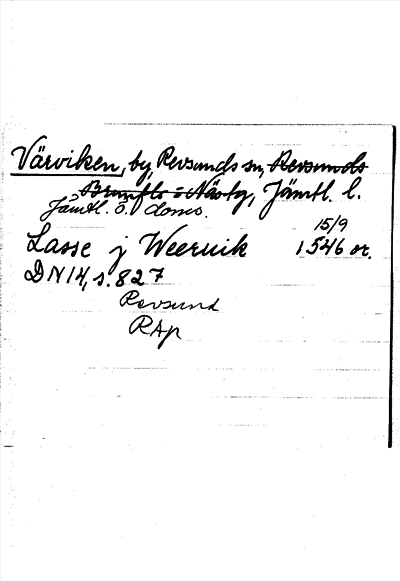 Värviken, by, Revsunds sn, Revsunds
Brunflo o Näsby, Jämtl. l.
Jämtl. ö. doms.
15/9
Lasse j Weeruik 1546 or.
DN 14, s. 827
Revsund
RAp